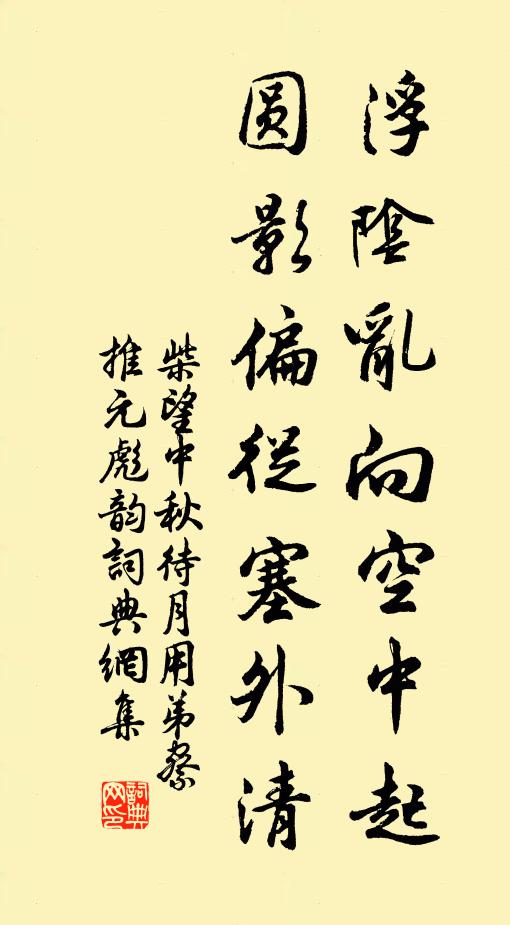 浮陰亂向空中起
圓影偏從塞外清
柴望中秋待月用弟察
推元彪韵詞典網集
詞典网印